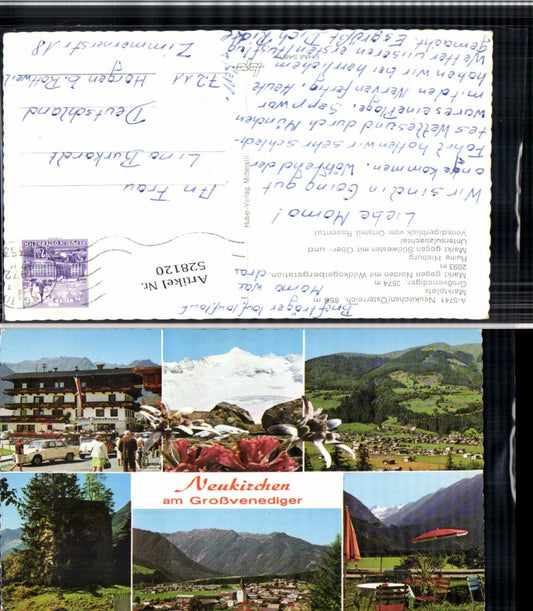 A-5741 Neukirchen/Österreich, 856 m
Marktplatz
Großvenediger, 3674 m
Markt gegen Norden mit Wildkogelbergstation,
2093 m
Ruine Hieburg
Markt gegen Südwesten mit Ober- und
Untersulzbachtal
Venedigerblick vom Ortsteil Rosental
Huber-Verlag, Mittersill
Liebe Mama!
Wir sind in Going gut
angekommen. Während der
Fahrt hatten wir sehr schlech-
tes Wetter und durch München
war es eine Plage. Sepp war
mit den Nerven fertig. Heute
haben wir bei herrlichem
Wetter unseren ersten Ausflug
gemacht. Es grüßt Dich
Mama war
Artikel Nr.
528120
An Frau
Lina Burkardt
Deutschland
7211
Horgen b. Rottweil
Zimmernerstr. 18
REPUBLIK ÖSTERREICH
Neukirchen
am Großvenediger